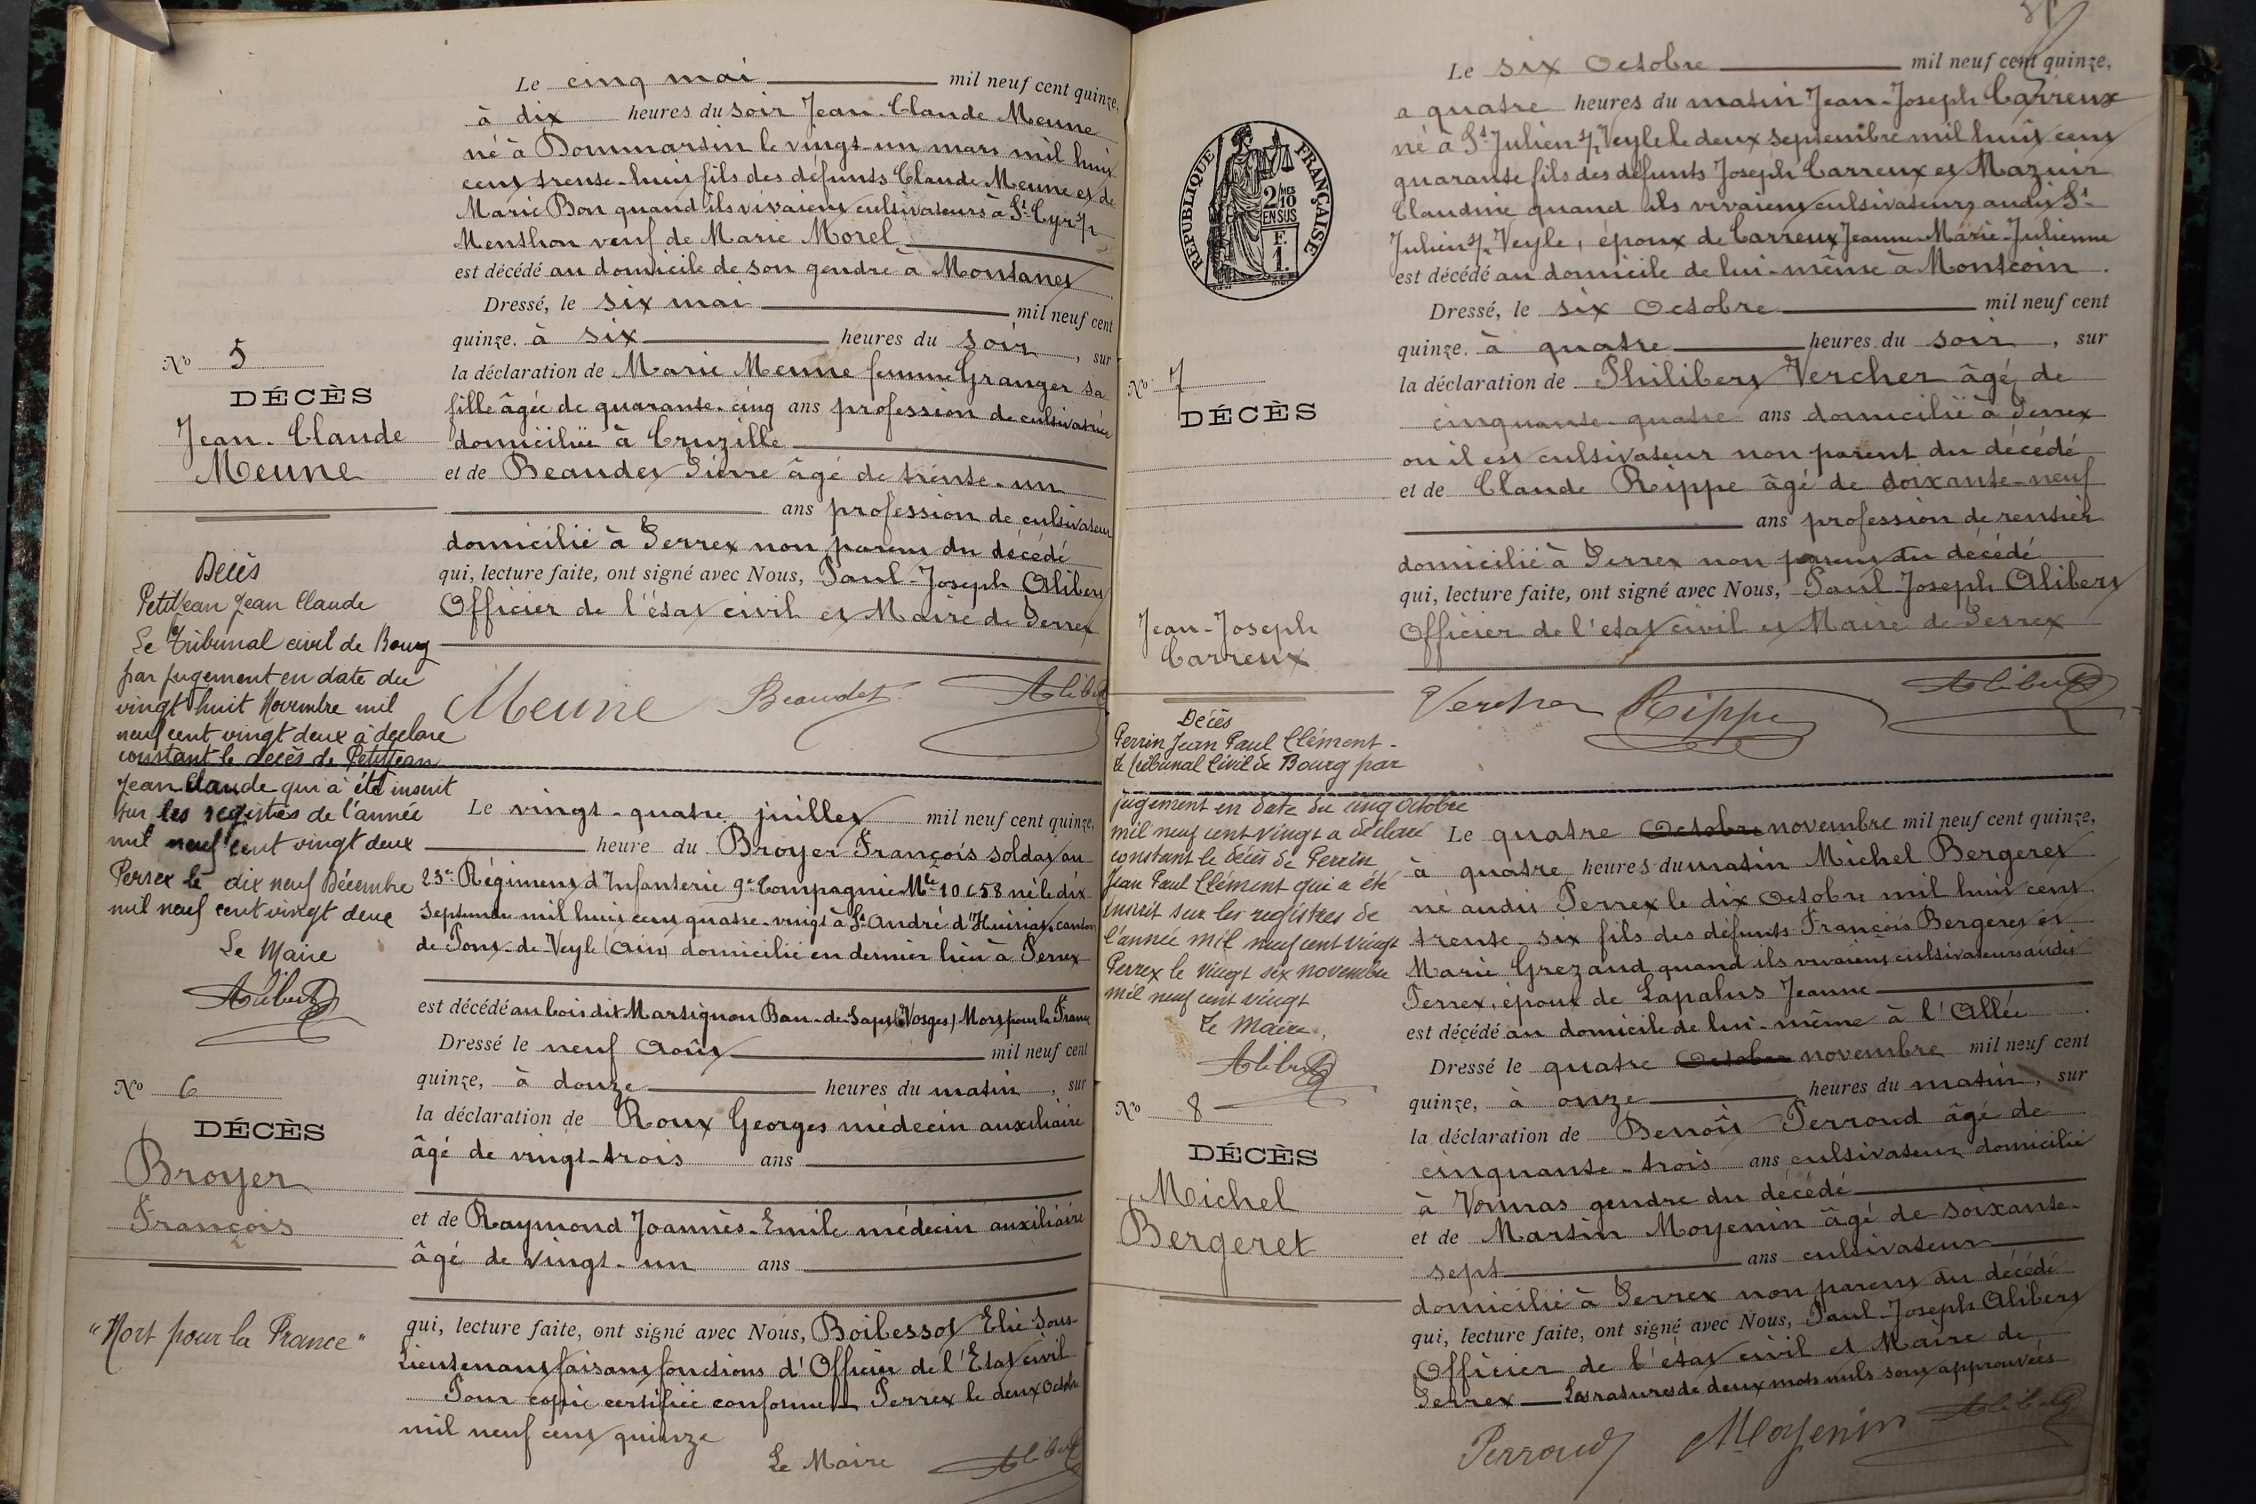 Le cinq mai mil neuf cent quinze,
à dix heures du soir Jean-Claude Meune
né à Dommartin le vingt-un mars mil huit
cent trente-huit fils des défunts Claude Meune et de
Marie Bon quand ils vivaient cultivateurs à St-Cyr s/
Menthon veuf de Marie Morel
est décédé au domicile de son gendre à Montanet
Dressé, le six mai mil neuf cent
quinze. à six heures du soir, sur
la déclaration de Marie Meune femme Granger sa
fille âgée de quarante-cinq ans profession de cultivatrice
domiciliée à Cruzille
et de Beaudet Pierre âgé de trente-un
ans profession de cultivateur
domicilié à Perrex non parent du décédé
qui, lecture faite, ont signé avec Nous, Paul-Joseph Alibert
Officier de l'état civil et Maire de Perrex
Meune Beaudet Alibert
No 5
DÉCÈS
Jean-Claude
Meune
Décès
Petitjean Jean Claude
Le Tribunal civil de Bourg
par jugement en date du
vingt huit Novembre mil
neuf cent vingt deux à déclaré
constant le décès de Petitjean
Jean Claude qui à été inscrit
sur les registres de l'année
mil neuf cent vingt deux
Perrex le dix neuf Décembre
mil neuf cent vingt deux
Le Maire
Alibert
Le vingt-quatre juillet mil neuf cent quinze,
heure du Broyer François soldat au
23e Régiment d'Infanterie 9e Compagnie Mle 10658 né le dix
Septembre mil huit cent quatre-vingt à St André d'Huiriat, canton
de Pont-de-Veyle (Ain) domicilié en dernier lieu à Perrex
est décédé au bois dit Martignon Ban-de-Sapt (Vosges) Mort pour la France
Dressé le neuf Août mil neuf cent
quinze, à douze heures du matin, sur
la déclaration de Roux Georges médecin auxiliaire
âgé de vingt-trois ans
et de Raymond Joannès-Emile médecin auxiliaire
âgé de vingt-un ans
qui, lecture faite, ont signé avec Nous, Boibessot Elie Sous-
Lieutenant faisant fonctions d'Officier de l'Etat civil
Pour copie certifiée conforme Perrex le deux Octobre
mil neuf cent quinze
Le Maire Alibert
No 6
DÉCÈS
Broyer
François
"Mort pour la France"
Le six Octobre mil neuf cent quinze,
a quatre heures du matin Jean-Joseph Carreux
né à St Julien s/ Veyle le deux septembre mil huit cent
quarante fils des défunts Joseph Carreux et Mazuir
Claudine quand ils vivaient cultivateurs audit St-
Julien s/ Veyle, époux de Carreux Jeanne-Marie-Julienne
est décédé au domicile de lui-même à Montcoin.
Dressé, le six Octobre mil neuf cent
quinze. à quatre heures du soir, sur
la déclaration de Philibert Vercher âgé de
cinquante-quatre ans domicilié à Perrex
ou il est cultivateur non parent du décédé
et de Claude Rippe âgé de soixante-neuf
ans profession de rentier
domicilié à Perrex non parent du décédé
qui, lecture faite, ont signé avec Nous, Paul-Joseph Alibert
Officier de l'etat civil et Maire de Perrex
Vercher Rippe Alibert
RÉPUBLIQUE FRANÇAISE
2 MES
10
EN SUS
F.
1.
No 7
DÉCÈS
Jean-Joseph
Carreux
Décès
Perrin Jean Paul Clément-
Le tribunal Civil de Bourg par
jugement en date du cinq Octobre
mil neuf cent vingt a déclaré
constant le décès de Perrin
Jean Paul Clément qui a été
inscrit sur les registres de
l'année mil neuf cent vingt
Perrex le vingt six novembre
mil neuf cent vingt
Le Maire,
Alibert
Le quatre Octobre novembre mil neuf cent quinze,
à quatre heures du matin Michel Bergeret
né audit Perrex le dix Octobre mil huit cent
trente-six fils des défunts François Bergeret et
Marie Grezaud quand ils vivaient cultivateurs audit
Perrex, époux de Lapalus Jeanne
est décédé au domicile de lui-même à l'Allée.
Dressé le quatre Octobre novembre mil neuf cent
quinze, à onze heures du matin, sur
la déclaration de Benoît Perroud âgé de
cinquante-trois ans cultivateur domicilié
à Vonnas gendre du décédé
et de Martin Moyenin âgé de soixante-
sept ans cultivateur
domicilié à Perrex non parent du décédé
qui, lecture faite, ont signé avec Nous, Paul-Joseph Alibert
Officier de l'état civil et Maire de
Perrex Les ratures de deux mots nuls sont approuvées
Perroud Moyenin Alibert
No 8
DÉCÈS
Michel
Bergeret